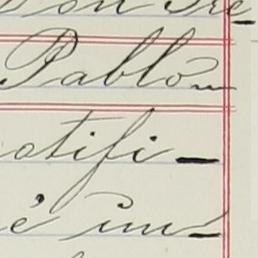 Don Pre
Pablo
otifi-
é im-